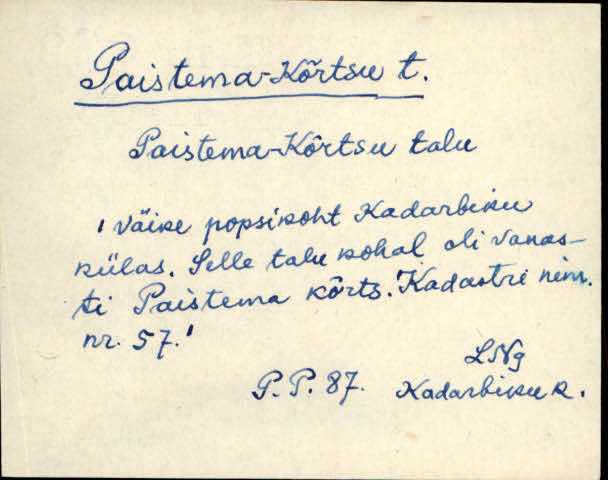 Paistema-Kõrtsu t.
Paistema-Kõrtsu talu
' Väike popsikoht Kadarbiku
külas. Selle talu kohal oli vanas-
ti Paistema kõrts. Kadastri nim.
nr. 57.'
LNg
P.P. 87. Kadarbiku k.